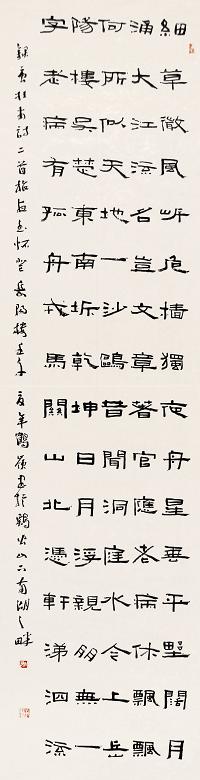 細草微風岸危檣獨夜舟星垂平野闊月
涌大江流名豈文章著官應老病休飄飄
何所似天地一沙鷗昔聞洞庭水今上岳
陽樓吳楚東南坼乾坤日月浮親朋無一
字老病有孤舟戎馬關山北憑軒涕泗流
錄唐杜甫詩二首旅夜書懷登岳陽樓